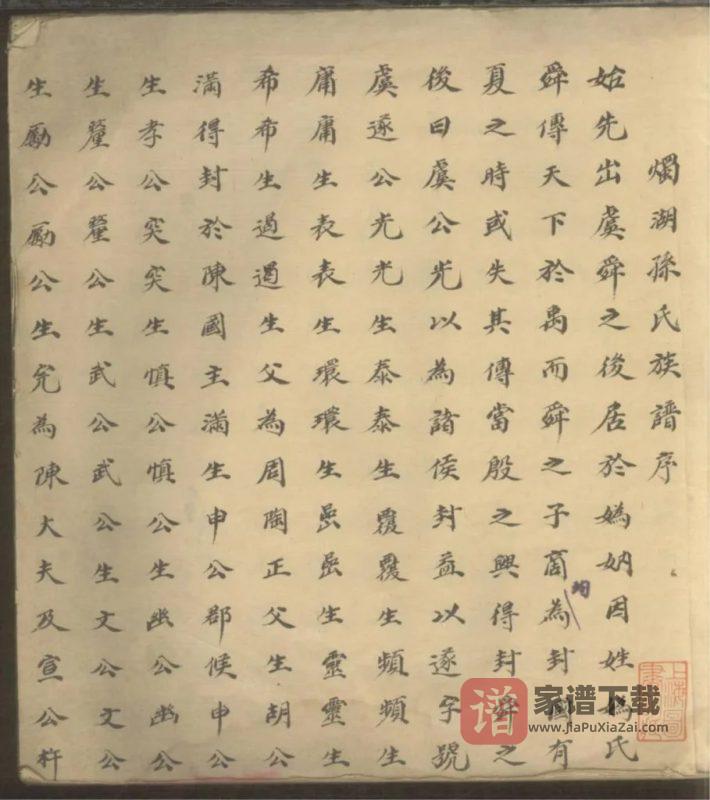 燭湖孫氏族譜序
始先出虞舜之後居於媯妠因姓媯氏
舜傳天下於禹而舜之子商為封國有
均
夏之時或失其傳當殷之興得封舜之
後曰虞公光以為諸侯封益以遂字號
虞遂公光光生泰泰生覆覆生頻頻生
庸庸生表表生環環生喦喦生靈靈生
希希生遏遏生父為周陶正父生胡公
滿得封於陳國主滿生申公郡候申公
生孝公突突生慎公慎公生幽公幽公
生釐公釐公生武公武公生文公文公
生勵公勵公生完為陳大夫及宣公杵
上海圖書館
谱
家谱下载
www.JiaPuXiaZai.com